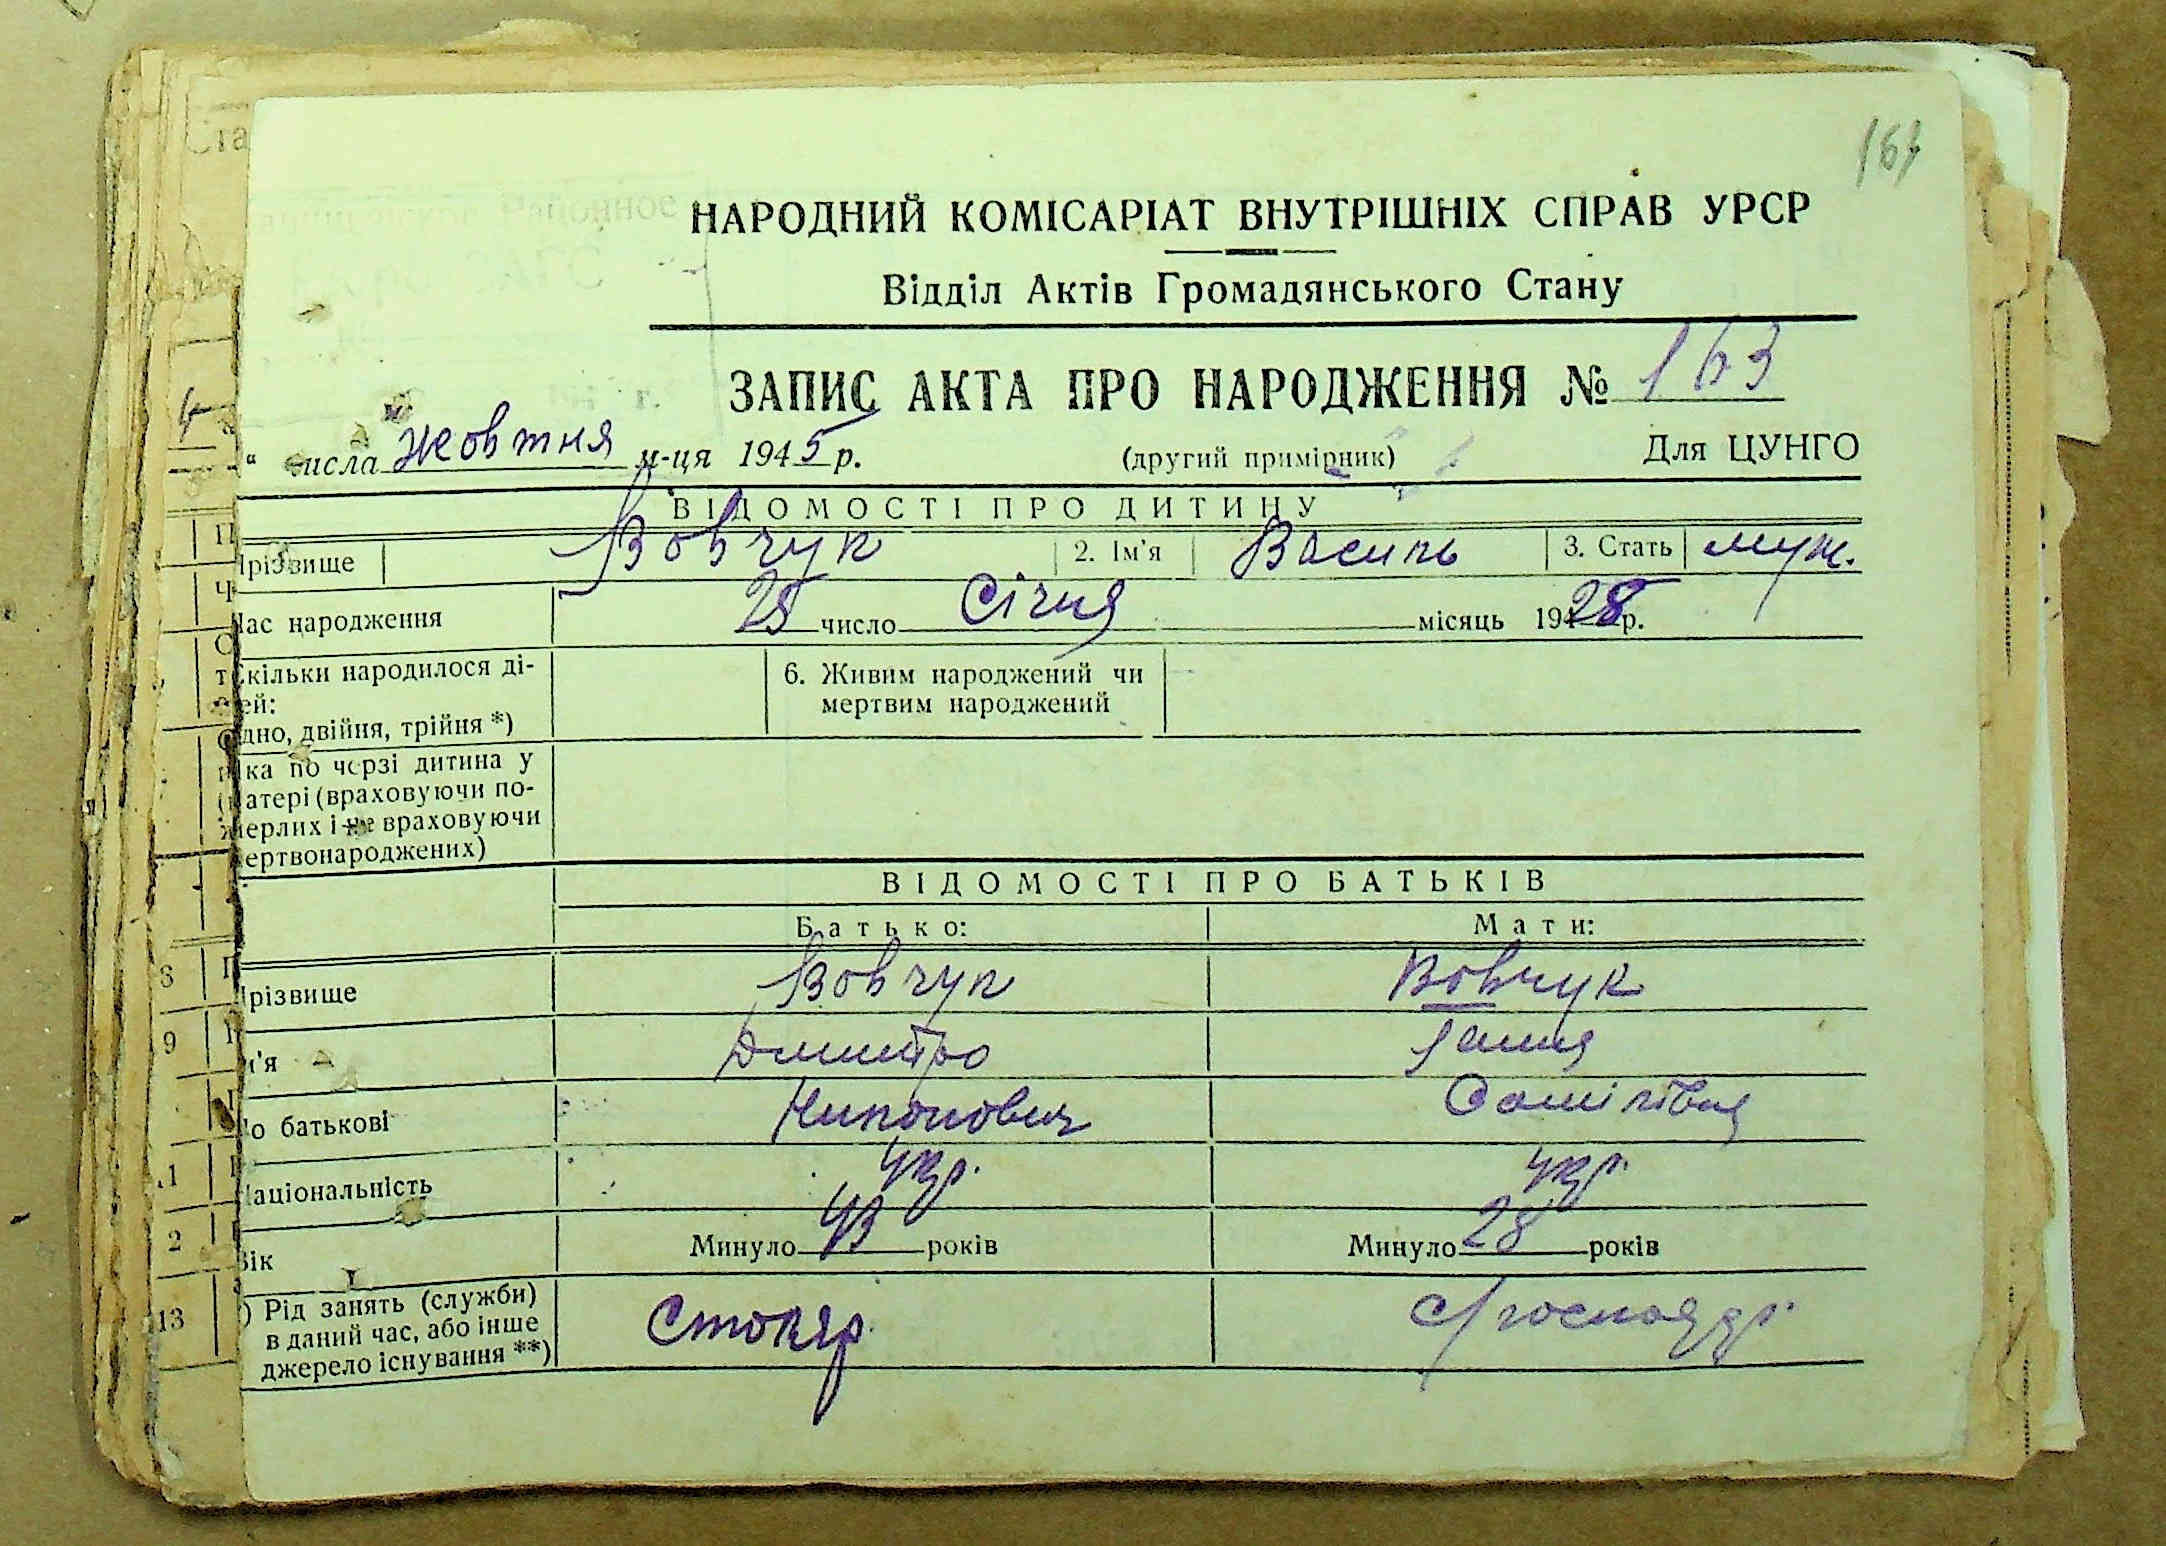 НАРОДНИЙ КОМІСАРІАТ ВНУТРІШНІХ СПРАВ УРСР
Відділ Актів Громадянського Стану
ЗАПИС АКТА ПРО НАРОДЖЕННЯ № 163
“ числа жовтня м-ця 1945 р. (другий примірник) Для ЦУНГО
ВІДОМОСТІ ПРО ДИТИНУ
Прізвище Вовчук 2. Ім'я Василь 3. Стать муж.
Час народження 25 число Січня місяць 1928 р.
Скільки народилося ді-
тей:
одно, двійня, трійня *)
6. Живим народжений чи
мертвим народжений
Яка по черзі дитина у
матері (враховуючи по-
мерлих і не враховуючи
мертвонароджених)
ВІДОМОСТІ ПРО БАТЬКІВ
Батько: Мати:
Прізвище Вовчук Вовчук
Ім'я Дмитро Ганна
По батькові Самілівна
Національність укр. укр.
Вік Минуло 43 років Минуло 28 років
) Рід занять (служби)
в даний час, або інше
джерело існування **)
Столяр